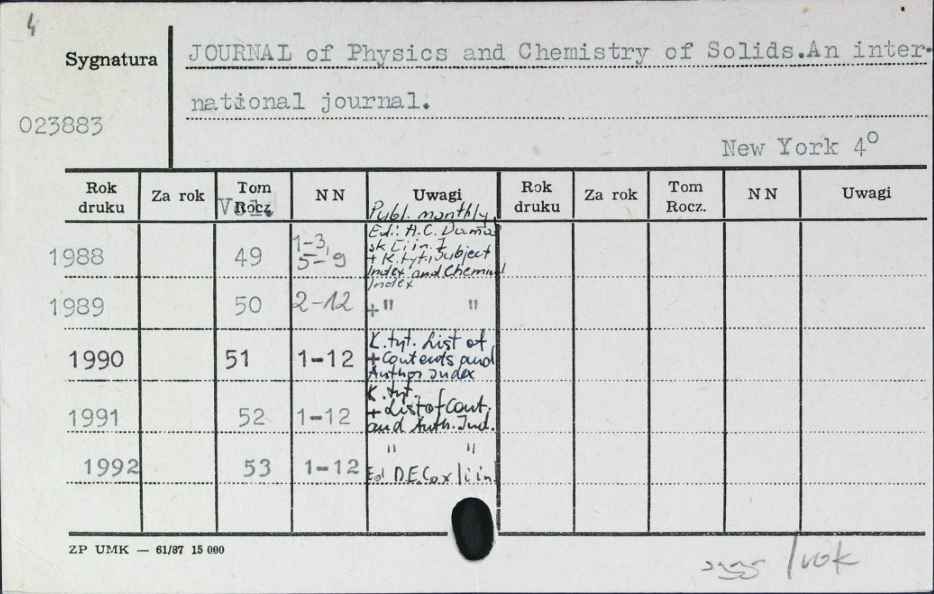 4
Sygnatura
JOURNAL of Physics and Chemistry of Solids.An inter-
national journal.
023883
New York 4°
Rok druku Za rok Tom Rocz. N N Uwagi Rok druku Za rok Tom Rocz. N N Uwagi
Vol.
Publ. monthly.
Ed.: A.C. Dama
sk [i in.]
1988 49 1-3, 5-9 + K. tyt., Subject
Index and Chemical
Index
1989 50 2-12 + " "
K. tyt. List of
1990 51 1-12 + Contents and
Author Index
K. tyt.
1991 52 1-12 + List of Cont.
and Auth. Ind.
" "
1992 53 1-12 Ed D.E. Cox [i in]
ZP UMK — 61/87 15 000
/rok